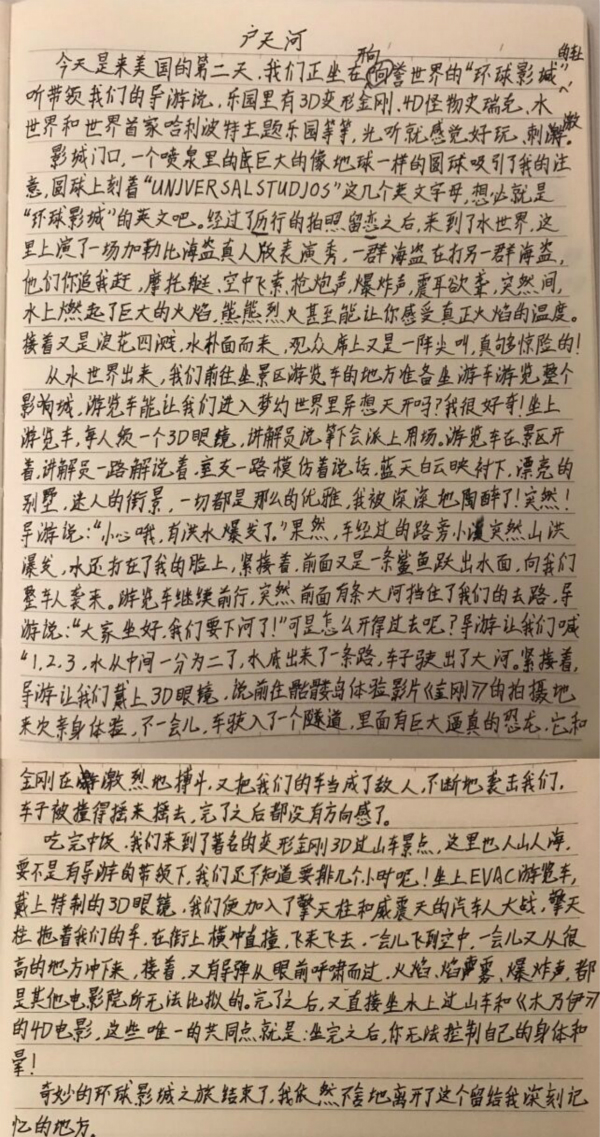 户天河
今天是来美国的第二天,我们正坐在闻誉世界的“环球影城”
听带领我们的导游说,乐园里有3D变形金刚、4D怪物史瑞克、水
世界和世界首家哈利波特主题乐园等等,光听就感觉好玩、刺激。
影城门口,一个喷泉里的巨大的像地球一样的圆球吸引了我的注
意,圆球上刻着“UNJVERSALSTUDJOS”这几个英文字母,想必就是
“环球影城”的英文吧。经过了历行的拍照留恋之后,来到了水世界,这
里上演了一场加勒比海盗真人版表演秀,一群海盗在打另一群海盗,
他们你追我赶,摩托艇、空中飞索、枪炮声、爆炸声,震耳欲聋,突然间,
水上燃起了巨大的火焰,熊熊烈火甚至能让你感受真正火焰的温度。
接着又是浪花四溅,水朴面而来,观众席上又是一阵尖叫,真够惊险的!
从水世界出来,我们前往坐景区游览车的地方准备坐游车游览整个
影城,游览车能让我们进入梦幻世界里异想天开吗?我很好奇!坐上
游览车,每人领一个3D眼镜,讲解员说等下会派上用场。游览车在景区开
着,讲解员一路解说着,一路模仿着说话,蓝天白云映衬下,漂亮的
别墅,迷人的街景,一切都是那么的优雅,我被深深地陶醉了!突然!
导游说:“小心哦,有洪水爆发了。”果然,车经过的路旁小溪突然山洪
瀑发,水还打在了我的脸上,紧接着,前面又是一条鲨鱼跃出水面,向我们
整车人袭来。游览车继续前行,突然前面有条大河挡住了我们的去路,导
游说:“大家坐好,我们要下河了!”可是怎么开得过去呢?导游让我们喊
“1,2,3,水从中间一分为二了,水底出来了一条路,车子驶出了大河。紧接着,
导游让我们戴上3D眼镜,说前往骷髅岛体验影片《金刚》的拍摄地
来次亲身体验,不一会儿,车驶入了一个隧道,里面有巨大逼真的恐龙,它和
金刚在激烈地搏斗,又把我们的车当成了敌人,不断地袭击我们,
车子被撞得摇来摇去,完了之后都没有方向感了。
吃完中饭,我们来到了著名的变形金刚3D过山车景点,这里也人山人海,
要不是有导游的带领下,我们还不知道要排几个小时呢!坐上EVAC游览车,
戴上特制的3D眼镜,我们便加入了擎天柱和威震天的汽车人大战,擎天
柱拖着我们的车,在街上横冲直撞,飞来飞去,一会儿飞到空中,一会儿又从很
高的地方冲下来,接着,又有导弹从眼前呼啸而过,火焰、烟雾、爆炸声,都
是其他电影院所无法比拟的。完了之后,又直接坐水上过山车和《木乃伊》
的4D电影,这些唯一的共同点就是:坐完之后,你无法控制自己的身体和
晕!
奇妙的环球影城之旅结束了,我依然不舍地离开了这个留给我深刻记
忆的地方。